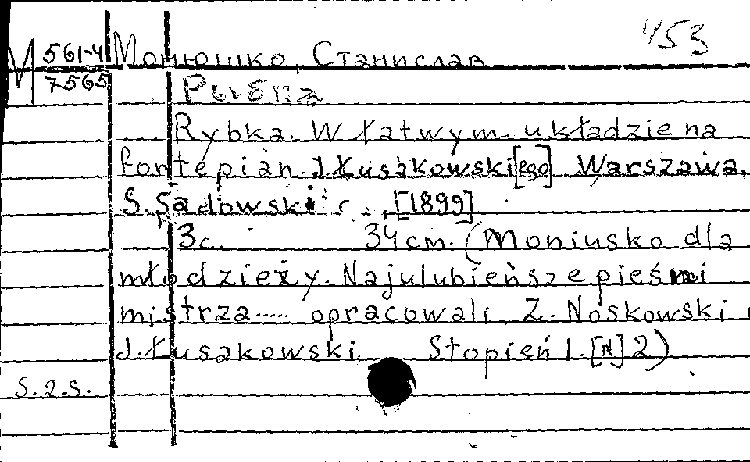 453
М 561-4 Монюшко, Станислав
7565
Rybka. W łatwym układzie na
fortepian J. Łusakowski[ego] Warszawa,
S. Sadowski [1899]
3с. 34 cm. (Moniusko dla
młodzieży. Najulubieńsze pieśni
mistrza ..... opracowali Z. Noskowski i
J. Łusakowski Stopień I. [N] 2)
S.2.S.